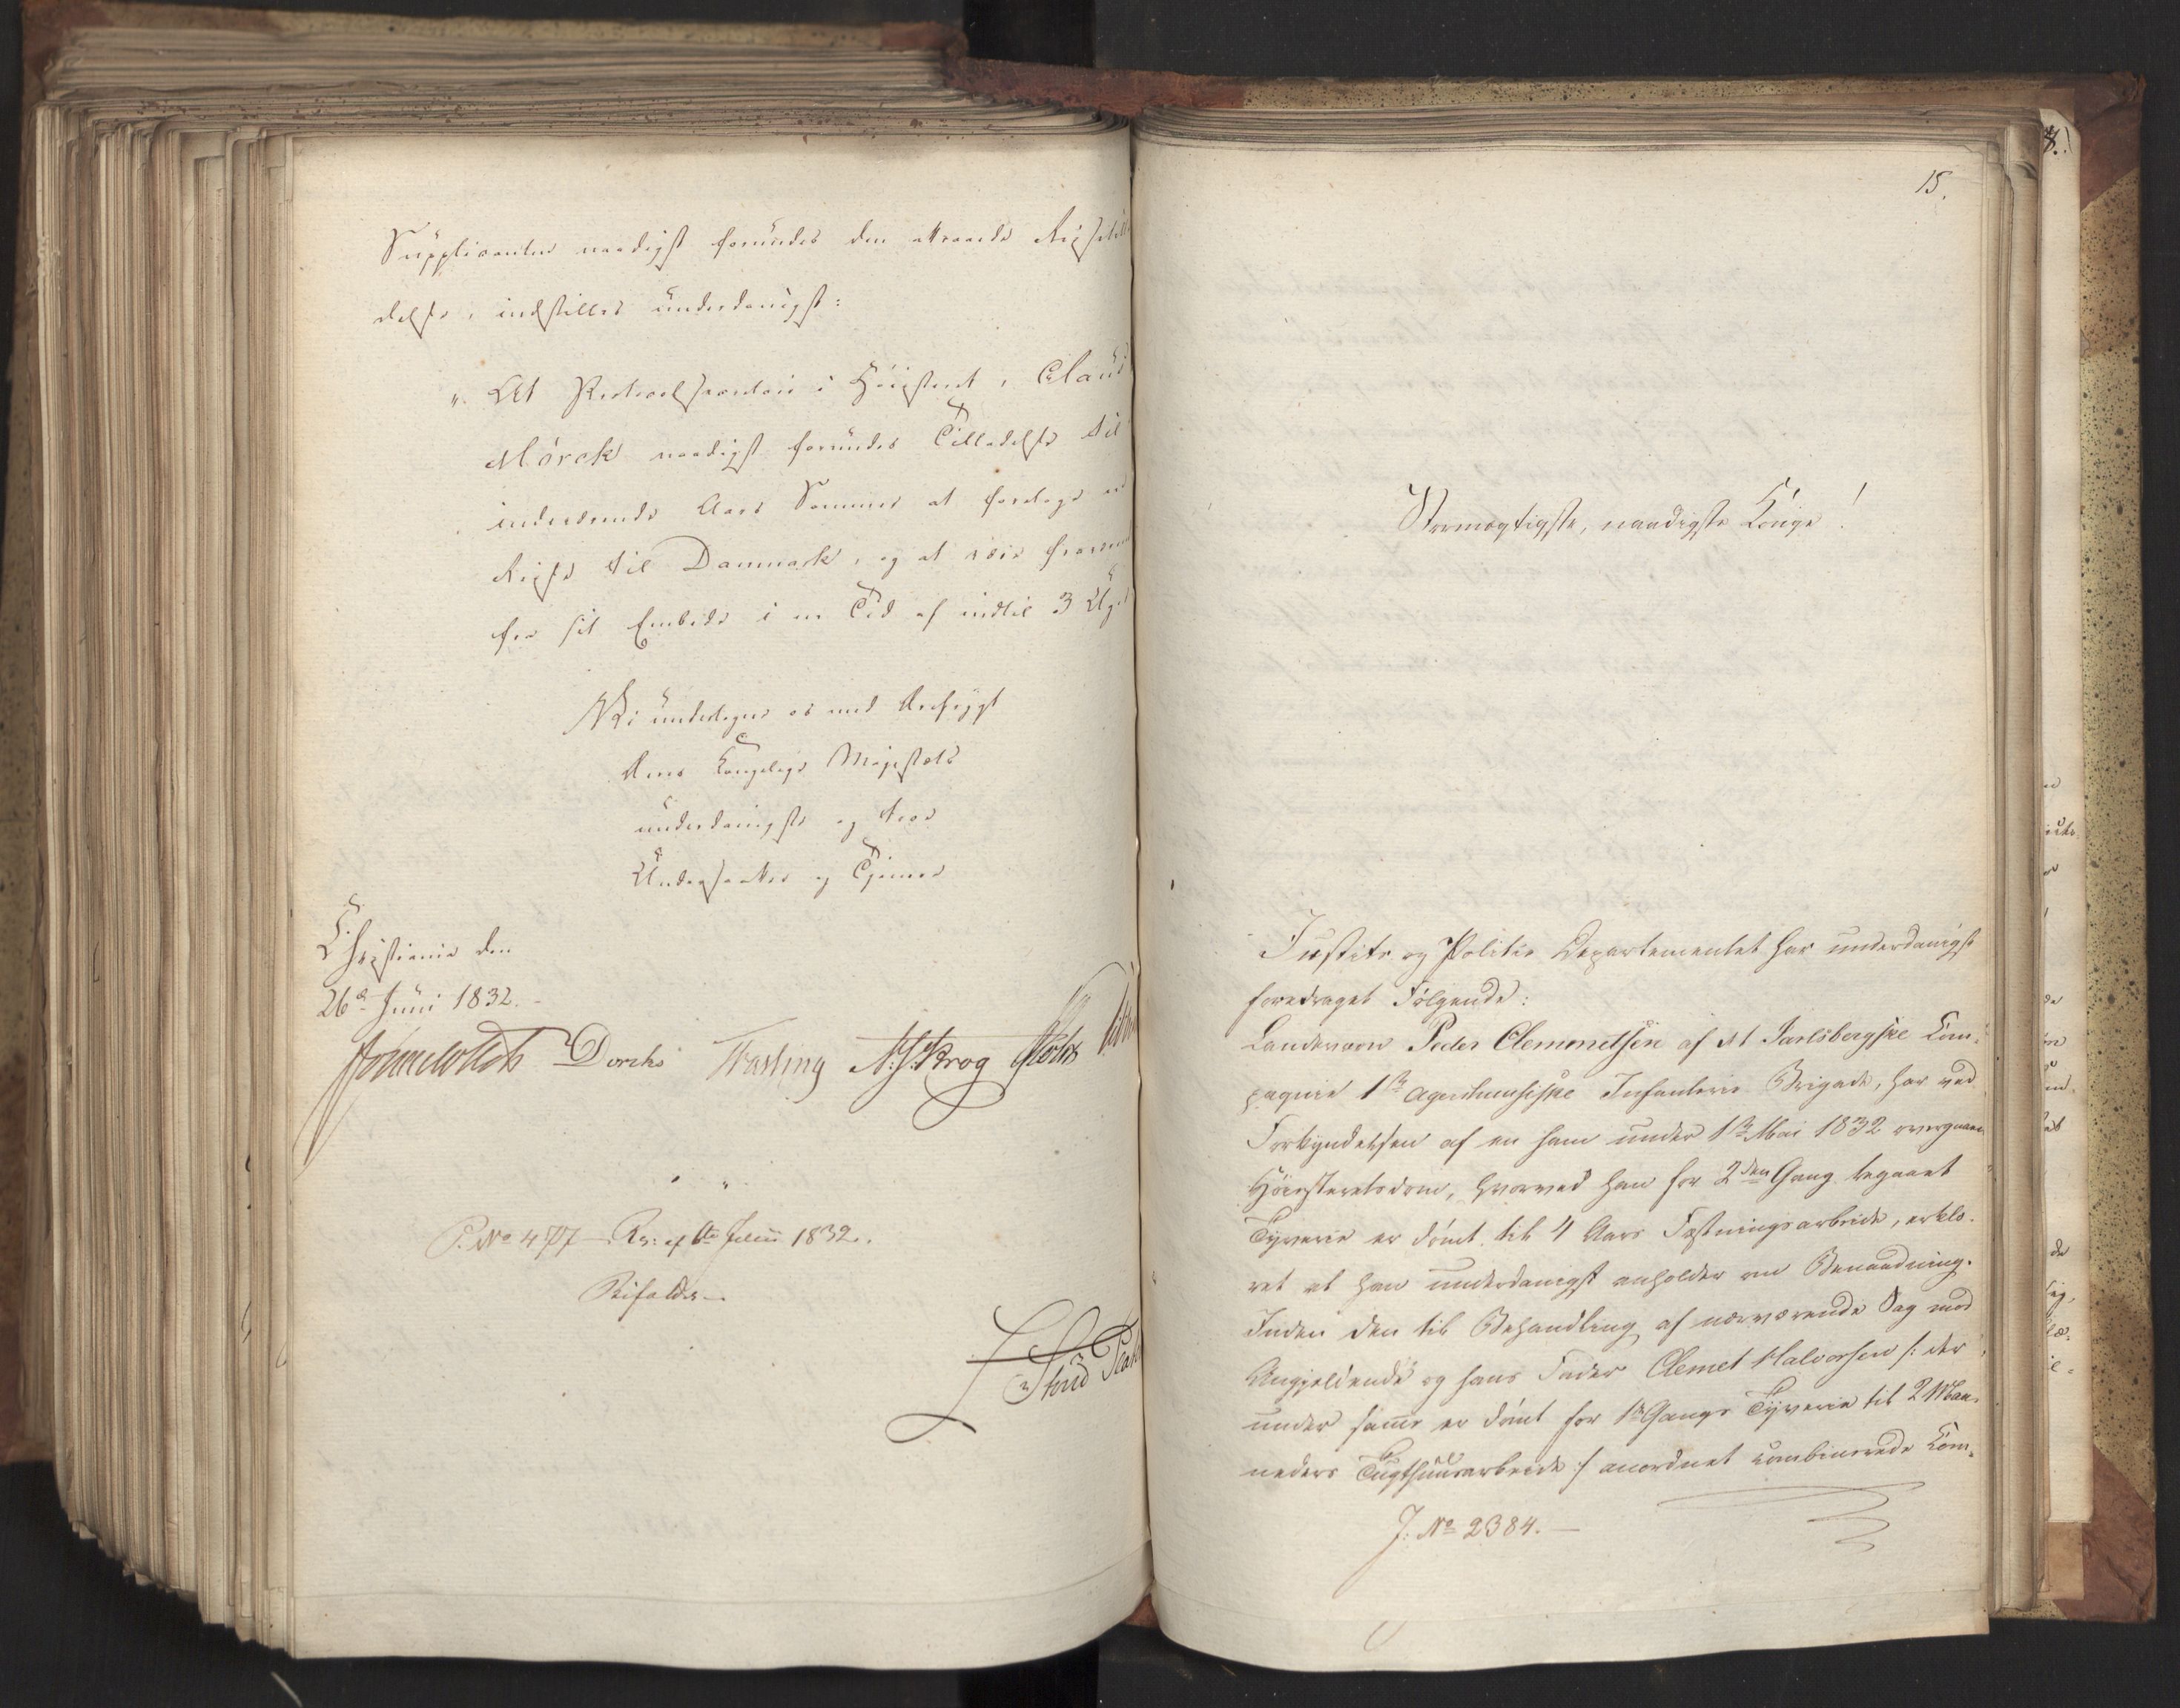 Supplicanten naadigst forundes den attraaede Reisetilla
delse, indstilles underdanigst:
" At Protocolsecretair i Höiesteret, Claus
Mörck naadigst forundes Tilladelse til
indeværende Aars Sommer at foretage en
Reise til Danmark, og at være fraværende
fra sit Embede i en Tid af indtil 3 Uger
Vi undertegne os med Ærefrygt
Deres Kongelige Majestæts
underdanigste og troe
Undersaatter og Tjenere
Christiania den
26de Juni 1832.
Sommerfeldt Dorchs Fasting N: J: Krog
P. No 477 — Res: af 6te Julii 1832.
Bifaldes.—
15.
Stormægtigste, naadigste Konge!
Justits og Politie Departementet har underdanigst
foredraget Følgende:
Landeværn Peder Clemmetsen af Jarlsbergske Com-
pagnie 1ste Agershusiske Infanterie Brigade, har ved
Forkyndelsen af en ham under 1ste Mai 1832 overgaaen
Höiesteretsdom, hvorved han for 2den Gang begaaet
Tyverie er dömt til 4 Aars Fæstningsarbeide, erklæ-
ret at han underdanigst anholder om Benaadning.
Inden den til Behandling af nærværende Sag mod
Angjeldende og hans Fader Clemet Halvorsen /: der
under samme er dömt for 1ste Gangs Tyverie til 2 Maa-
neders Tugthuusarbeide :/ anordnet combinerede Com-
J: No 2384.—